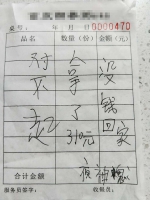 桌号: 年 月 日 0000470
品名 数量（份） 金额（元）
对不起
拿了310元
没钱回家
合计金额
服务员签字： 收银员：